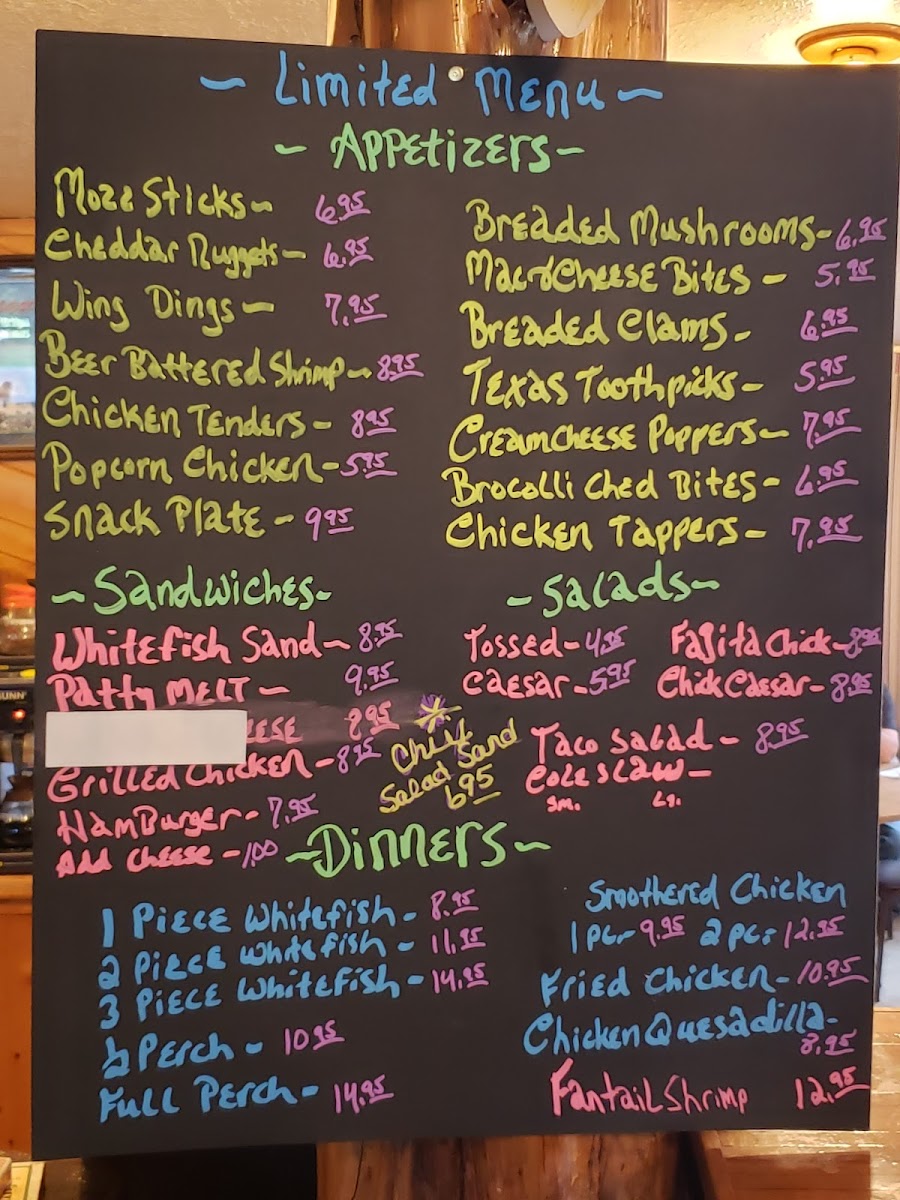 ~ Limited Menu ~
~ Appetizers ~
Mozz Sticks ~ 6.95
Cheddar Nuggets - 6.95
Wing Dings - 7.95
Beer Battered Shrimp - 8.95
Chicken Tenders - 8.95
Popcorn Chicken - 5.95
Snack Plate - 9.95
Breaded Mushrooms - 6.95
Mac & Cheese Bites - 5.95
Breaded Clams - 6.95
Texas Toothpicks - 5.95
Creamcheese Poppers - 7.95
Brocolli Ched Bites - 6.95
Chicken Tappers - 7.95
~ Sandwiches ~
Whitefish Sand - 8.95
Patty Melt - 9.95
8.95
Grilled Chicken - 8.95
Hamburger - 7.95
Add Cheese - 1.00
Salad Sand
6.95
~ Salads ~
Tossed - 4.95
Caesar - 5.95
Fajita Chick - 8.95
Chick Caesar - 8.95
Taco Salad - 8.95
Cole slaw -
Sm. Lg.
~ Dinners ~
1 Piece Whitefish - 8.95
2 Piece Whitefish - 11.95
3 Piece Whitefish - 14.95
½ Perch - 10.95
Full Perch - 14.95
Smothered Chicken
1 pc. - 9.95 2 pc. - 12.95
Fried Chicken - 10.95
Chicken Quesadilla -
8.95
Fantail Shrimp 12.95